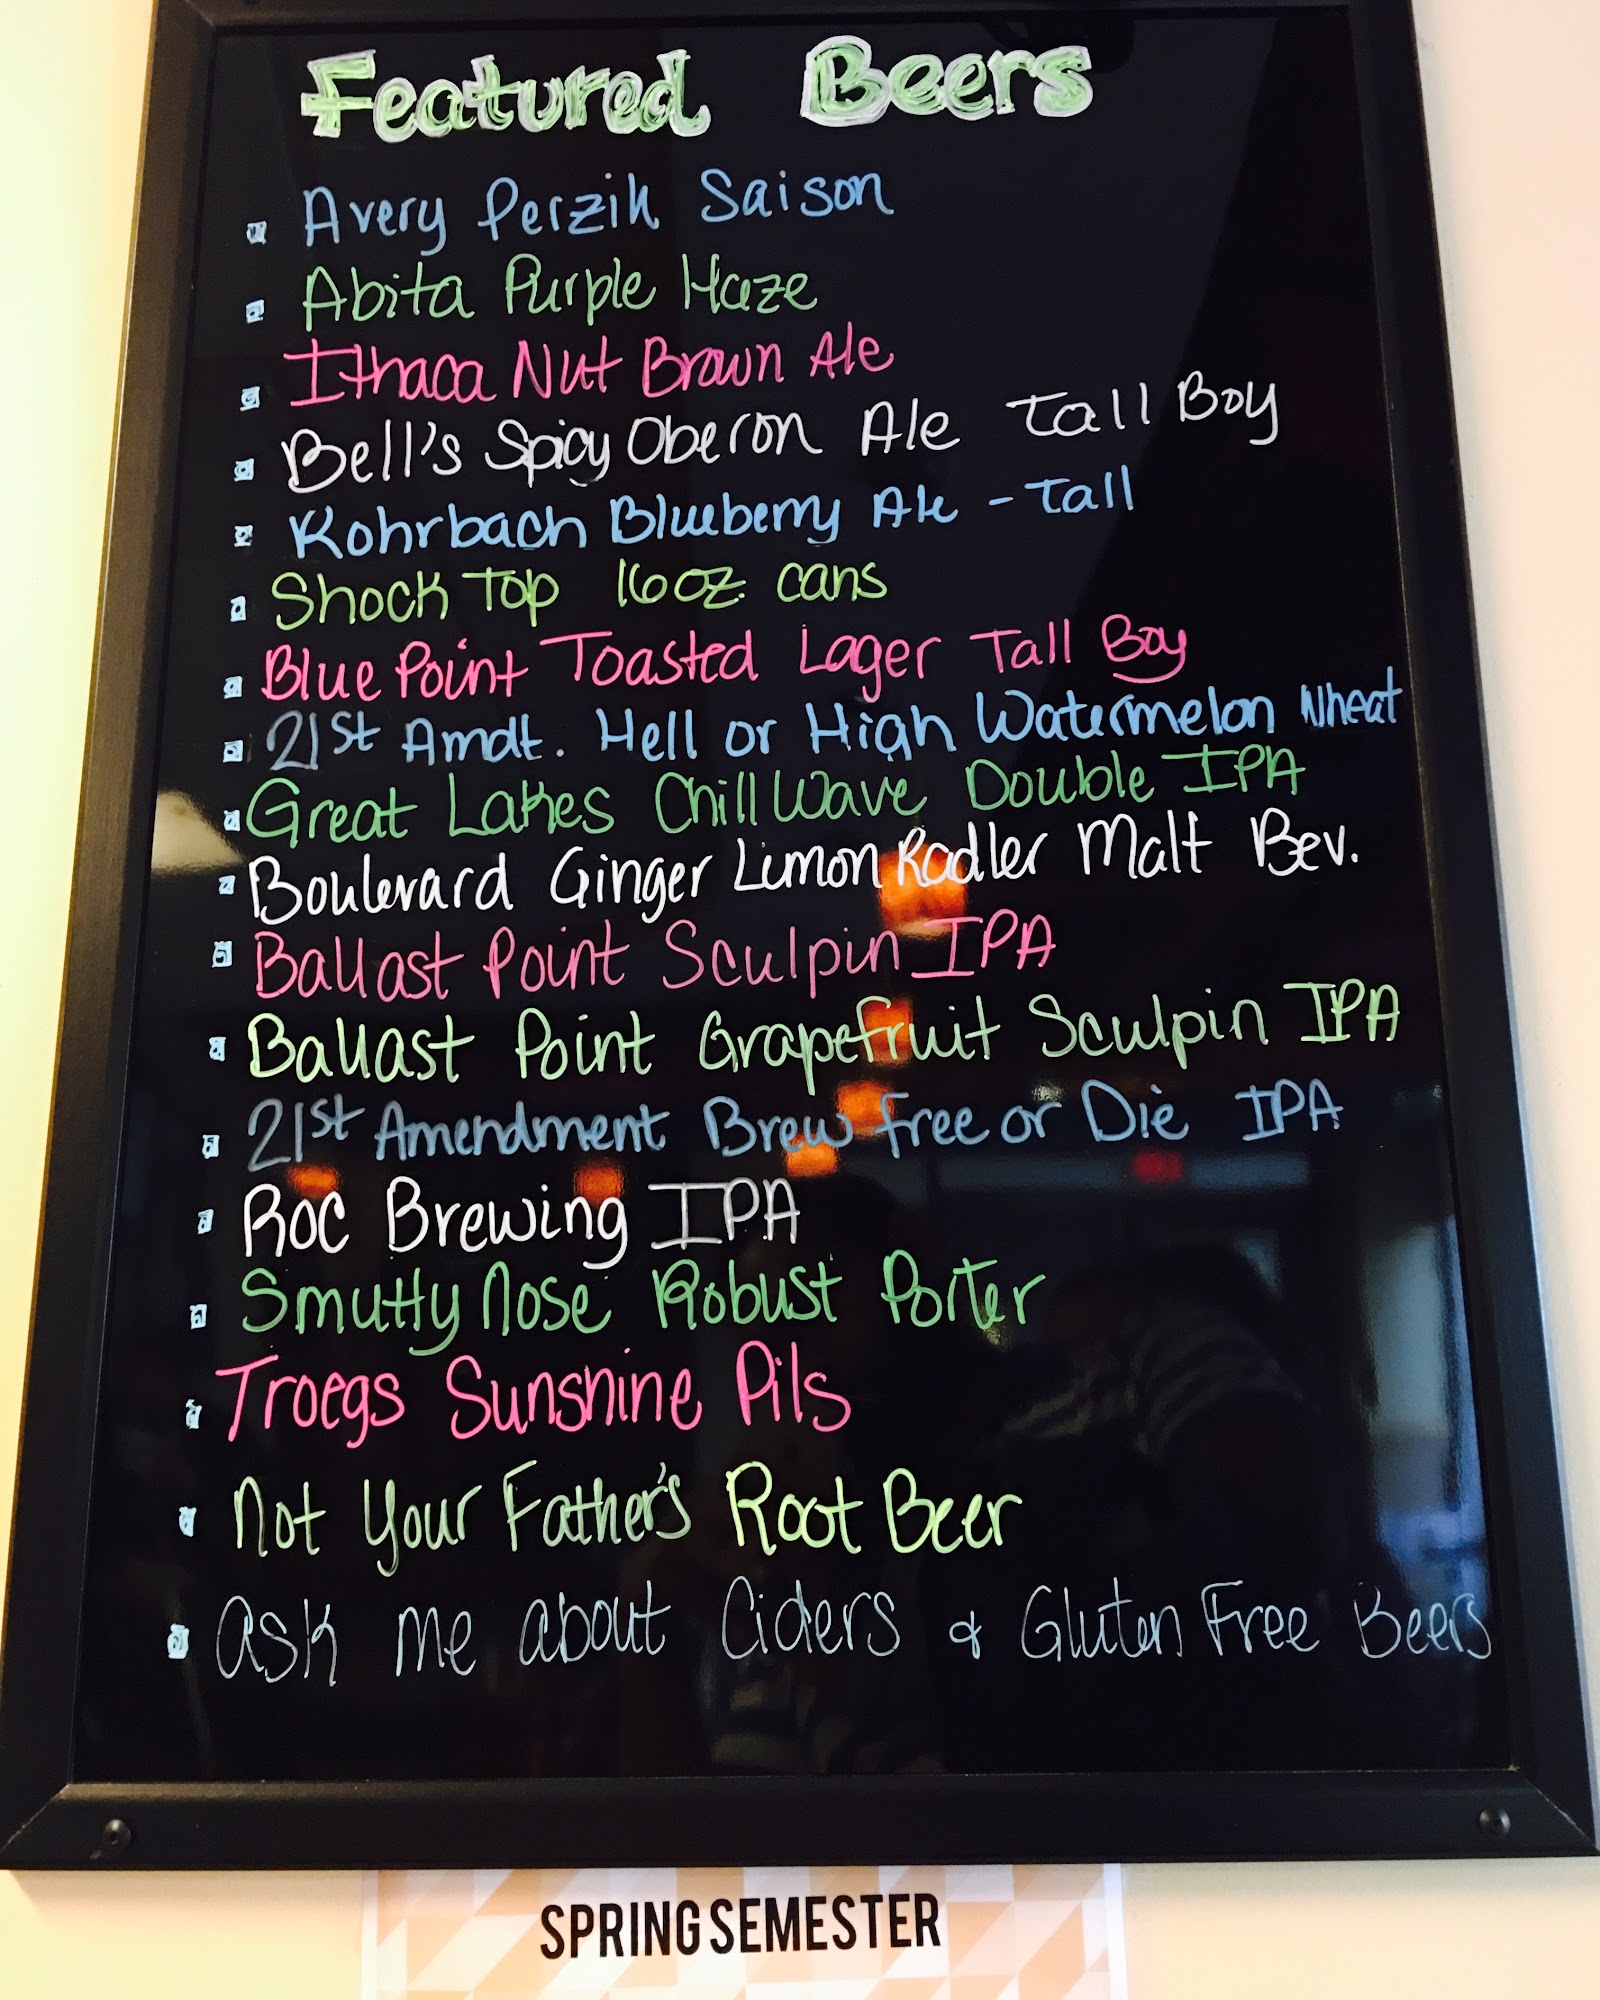 Featured Beers
Avery Perzik Saison
Abita Purple Haze
Ithaca Nut Brown Ale
Bell's Spicy Oberon Ale Tall Boy
Rohrbach Blueberry Ale - Tall
Shock Top 16oz cans
Blue Point Toasted Lager Tall Boy
21st Amdt. Hell or High Watermelon Wheat
Great Lakes Chillwave Double IPA
Boulevard Ginger Limon Radler Malt Bev.
Ballast Point Sculpin IPA
Ballast Point Grapefruit Sculpin IPA
21st Amendment Brew Free or Die IPA
Roc Brewing IPA
Smutty Nose Robust Porter
Troegs Sunshine Pils
Not Your Father's Root Beer
ask me about Ciders & Gluten Free Beers
SPRING SEMESTER